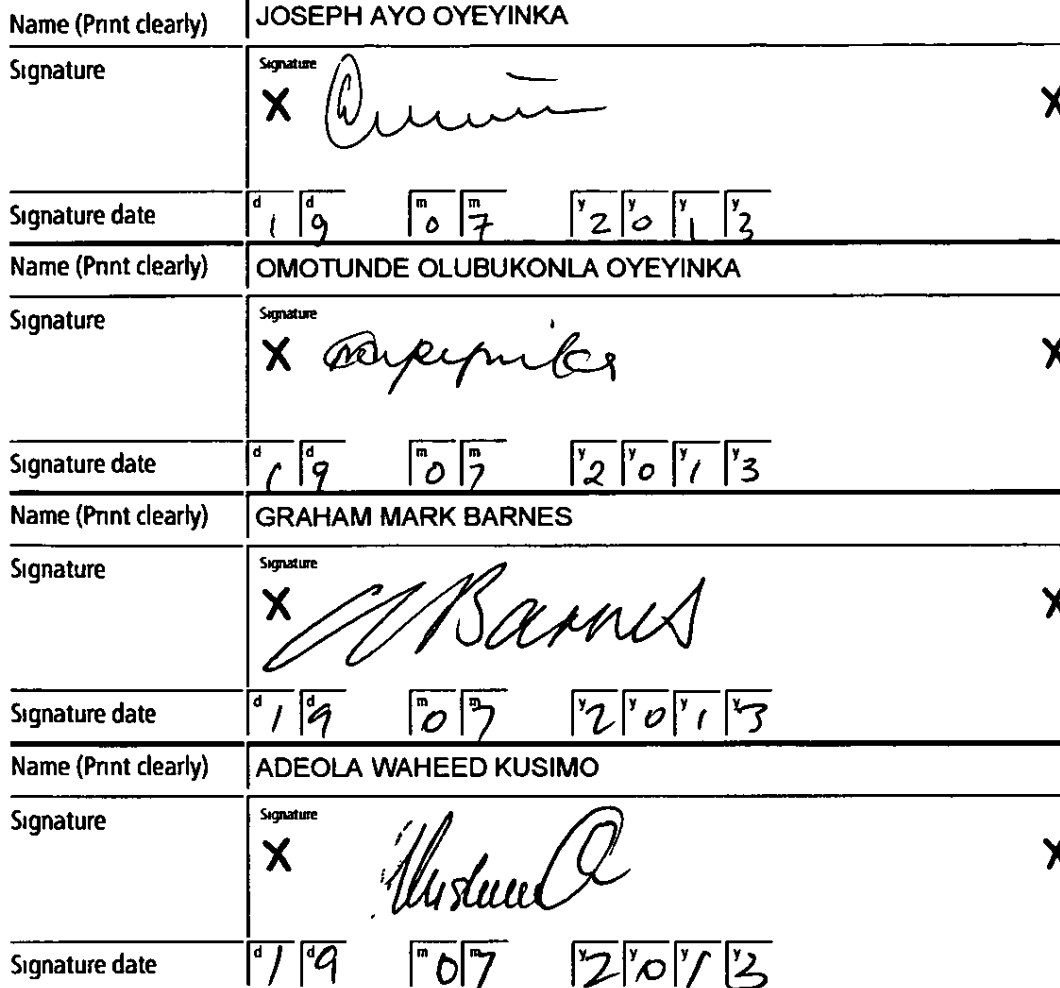 Name (Print clearly) JOSEPH AYO OYEYINKA
Signature Signature
X X
Signature date d 1 d 9 m 0 m 7 y 2 y 0 y 1 y 3
Name (Print clearly) OMOTUNDE OLUBUKONLA OYEYINKA
Signature Signature
X X
Signature date d 1 d 9 m 0 m 7 y 2 y 0 y 1 y 3
Name (Print clearly) GRAHAM MARK BARNES
Signature Signature
X Barnes X
Signature date d 1 d 9 m 0 m 7 y 2 y 0 y 1 y 3
Name (Print clearly) ADEOLA WAHEED KUSIMO
Signature Signature
X X
Signature date d 1 d 9 m 0 m 7 y 2 y 0 y 1 y 3